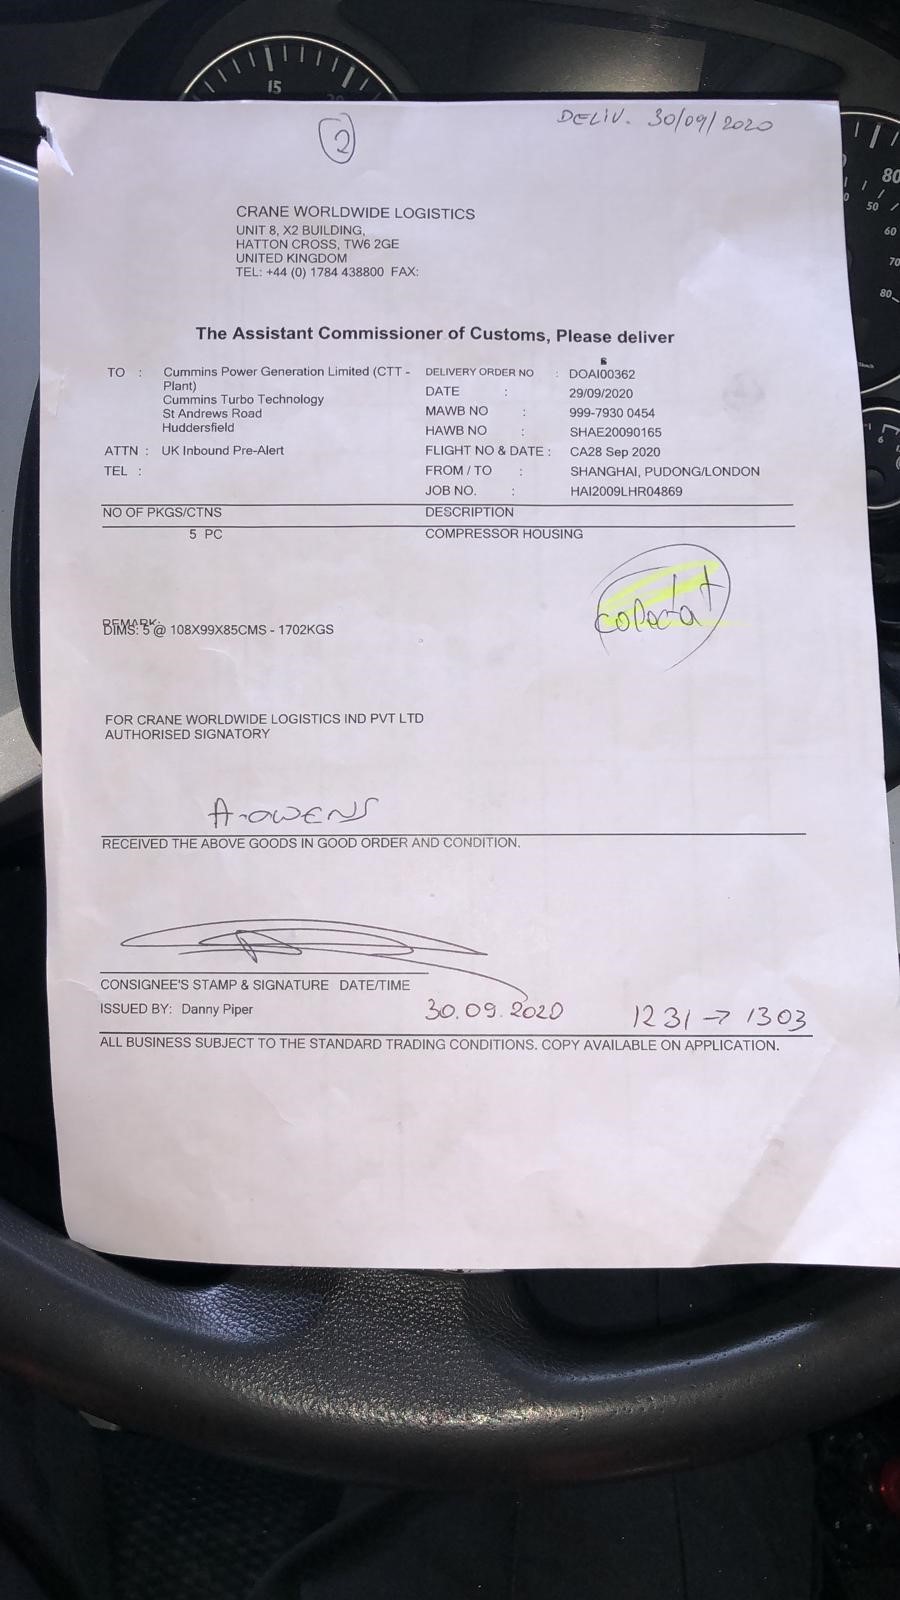 DELIV. 30/09/2020
2
CRANE WORLDWIDE LOGISTICS
UNIT 8, X2 BUILDING,
HATTON CROSS, TW6 2GE
UNITED KINGDOM
TEL: +44 (0) 1784 438800 FAX:
The Assistant Commissioner of Customs, Please deliver
TO : Cummins Power Generation Limited (CTT -
Plant)
Cummins Turbo Technology
St Andrews Road
Huddersfield
ATTN : UK Inbound Pre-Alert
TEL :
DELIVERY ORDER NO : DOAI00362
DATE : 29/09/2020
MAWB NO : 999-7930 0454
HAWB NO : SHAE20090165
FLIGHT NO & DATE : CA28 Sep 2020
FROM / TO : SHANGHAI, PUDONG/LONDON
JOB NO. : HAI2009LHR04869
NO OF PKGS/CTNS DESCRIPTION
5 PC COMPRESSOR HOUSING
colectat
REMARK:
DIMS: 5 @ 108X99X85CMS - 1702KGS
FOR CRANE WORLDWIDE LOGISTICS IND PVT LTD
AUTHORISED SIGNATORY
A-OWENS
RECEIVED THE ABOVE GOODS IN GOOD ORDER AND CONDITION.
CONSIGNEE'S STAMP & SIGNATURE DATE/TIME
ISSUED BY: Danny Piper 30.09.2020 1231 → 1303
ALL BUSINESS SUBJECT TO THE STANDARD TRADING CONDITIONS. COPY AVAILABLE ON APPLICATION.
15
80
50
60
70
80
6